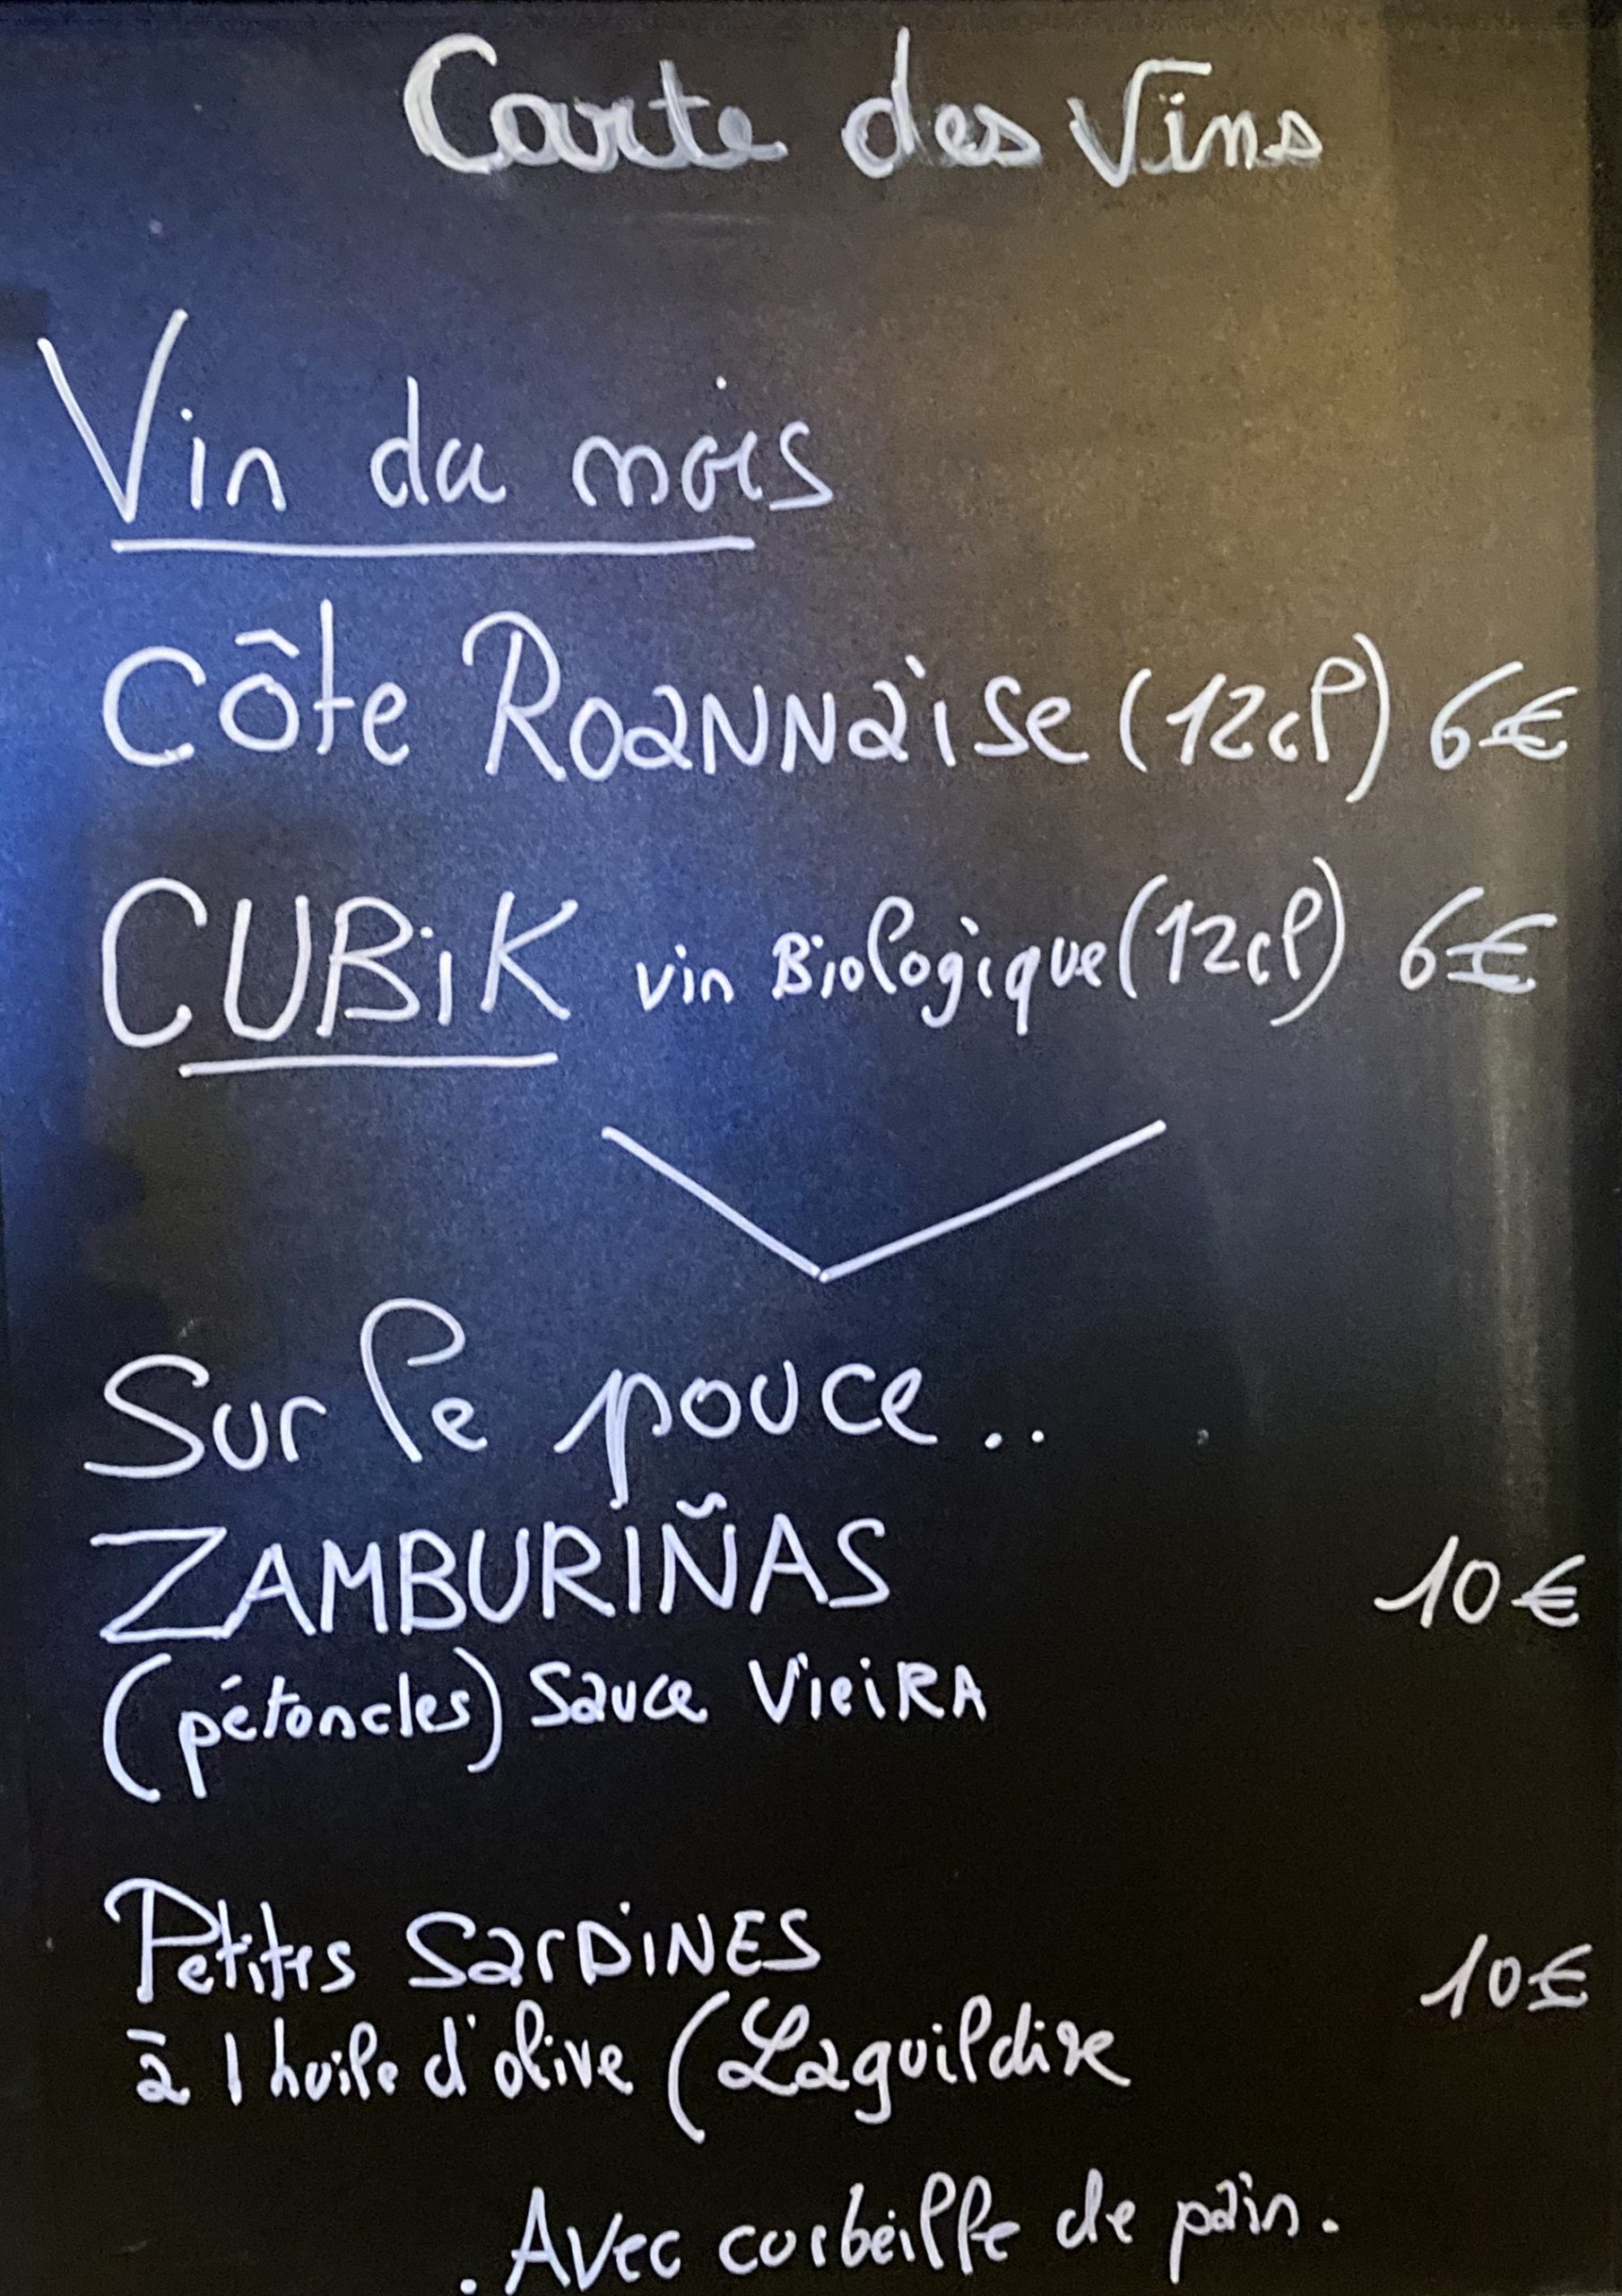 Carte des Vins
Vin du mois
Côte Roannaise (12cl) 6€
CUBiK vin Biologique (12cl) 6€
Sur le pouce..
ZAMBURIÑAS 10€
(pétoncles) Sauce VieiRA
Petites SarDiNES 10€
à l huile d'olive (Laguildive
. Avec corbeille de pain.